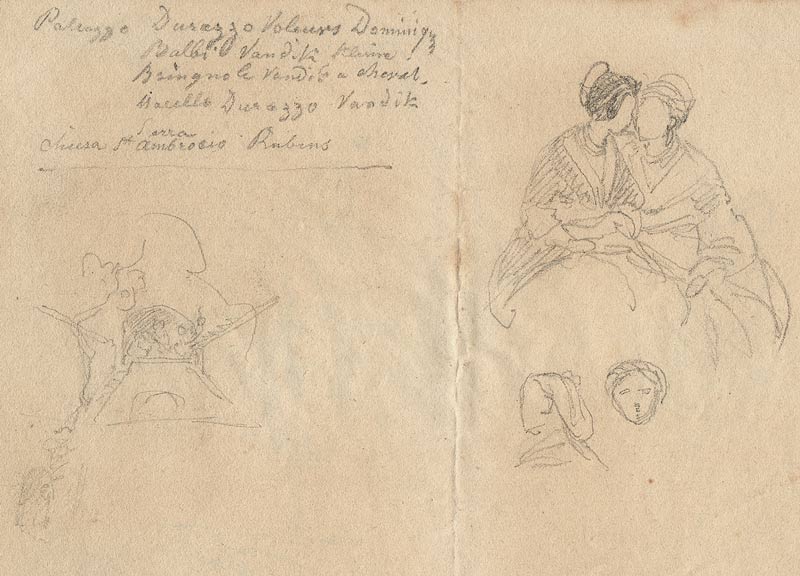 Palazzo Durazzo Voleurs Dominiq
Balbi Vandik
Bringnole Vandik a cheval
Marcello Durazzo Vandik
Serra
Chiesa St Ambrosio Rubens